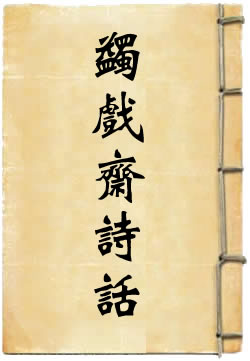 蠲戲齋詩話